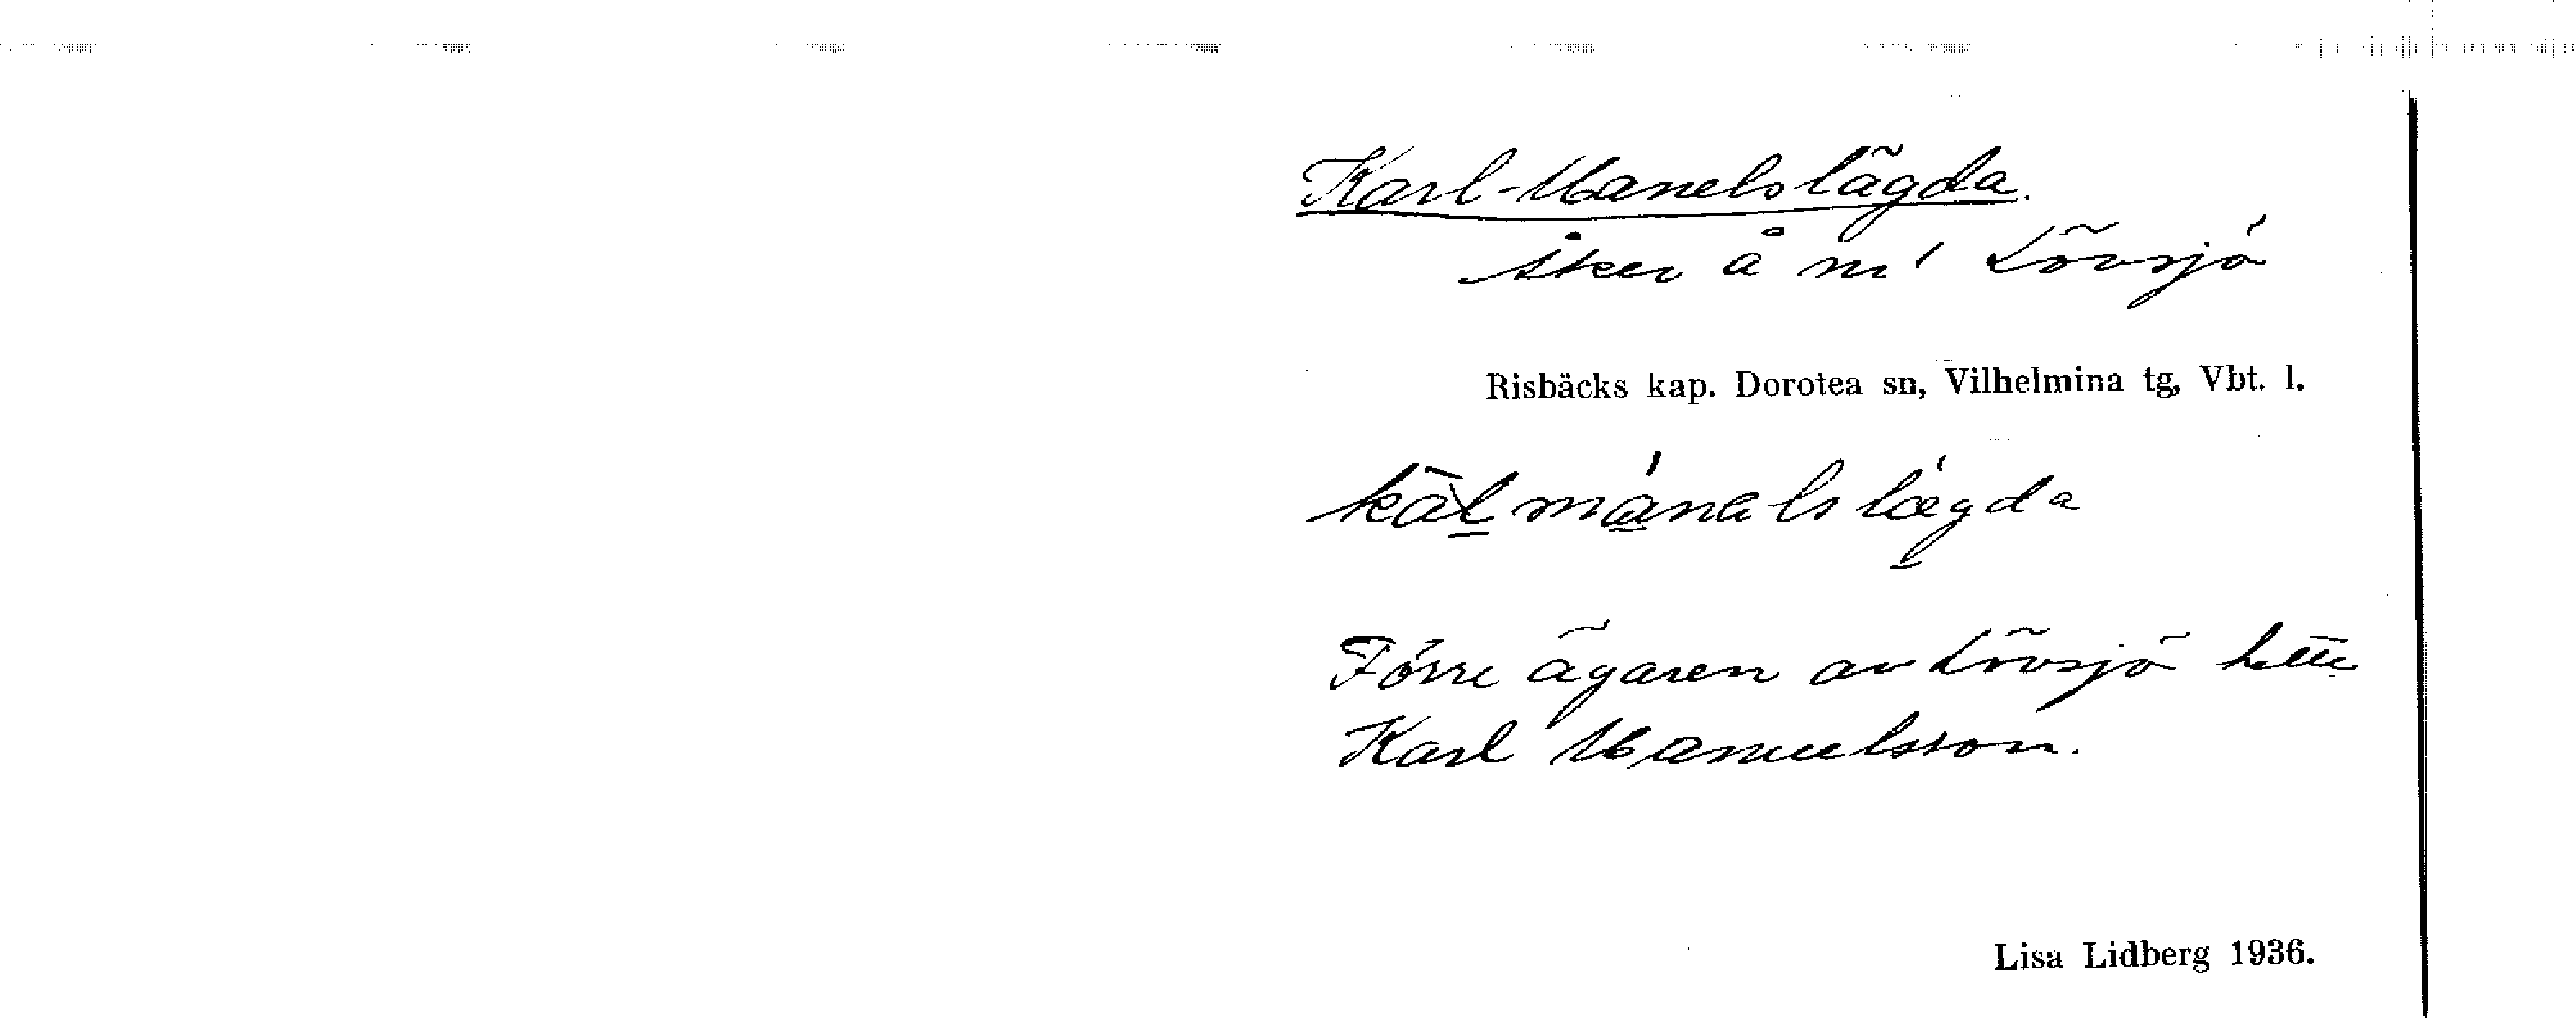 Karl-Manelslägda.
åker å m' Lövsjö
Risbäcks kap. Dorotea sn, Vilhelmina tg, Vbt. l.
Förre ägaren av Lövsjö hette
Karl Manuelsson.
Lisa Lidberg 1936.